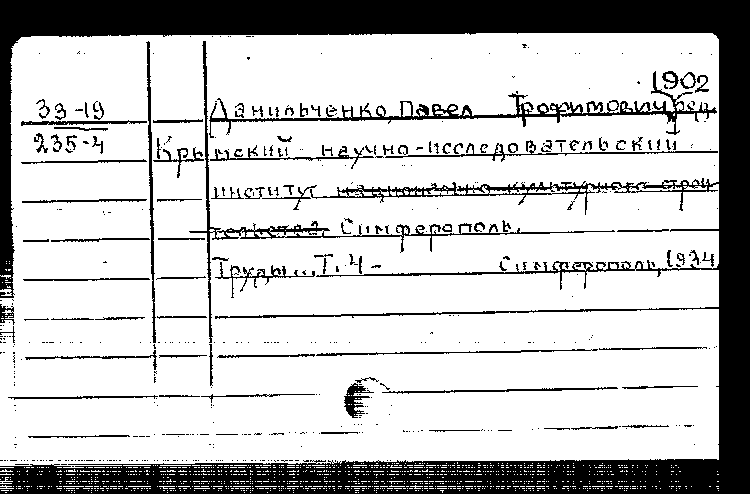 1902
33-19 Данильченко, Павел Трофимович, ред.
235-4 Крымский научно-исследовательский
институт национально-культурного строи
тельства. Симферополь.
Труды... Т. 4- Симферополь, 1934